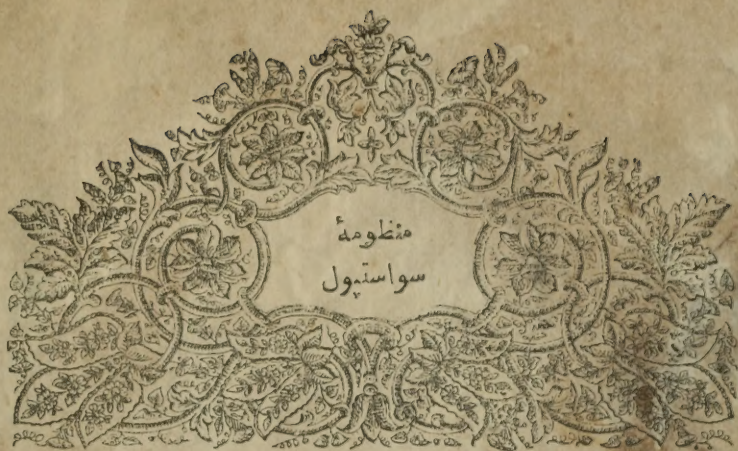 منظومهٔ
سواستپول